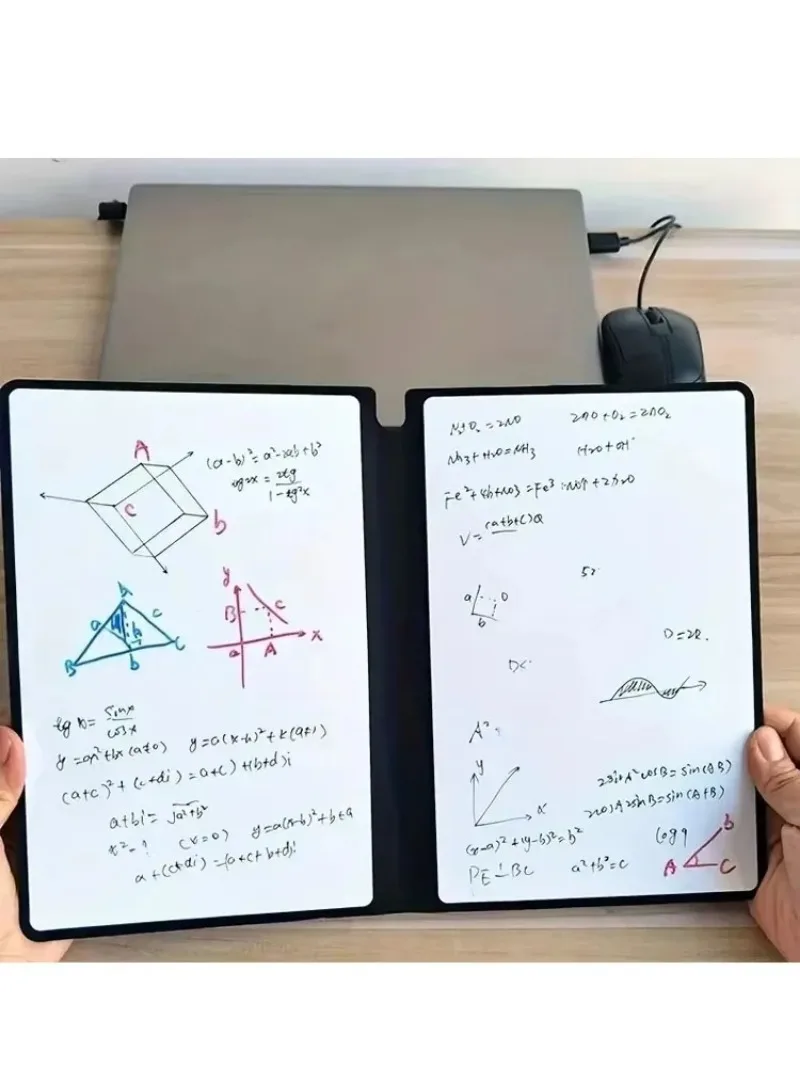 A
(a-b)²=a²-2ab+b²
tg2x = 2tg / 1-tg²x
C
b
A
a
c
h
B
b
C
y
B
C
a
A
x
tg x = sinx / cosx
y=ax²+bx(a≠0) y=a(x-h)²+k(a≠1)
(a+c)²+(c+di)=a+c)+(b+d)i
a+bi=√a²+b²
x²=? (x=0) y=a(x-b)²+b
a+(c+di)=(a+c+b+d)i
N₂+O₂=2NO 2NO+O₂=2NO₂
NH3+H2O=NH3 H2O+OH⁻
V= (a+b+c)
a
b
D=2R.
A²
y
x
2sinA²cosB=sin(AB)
2cosAsinB=sin(A+B)
(x-a)²+(y-b)²=b²
log
PE⊥BC a²+b²=c
b
A
C